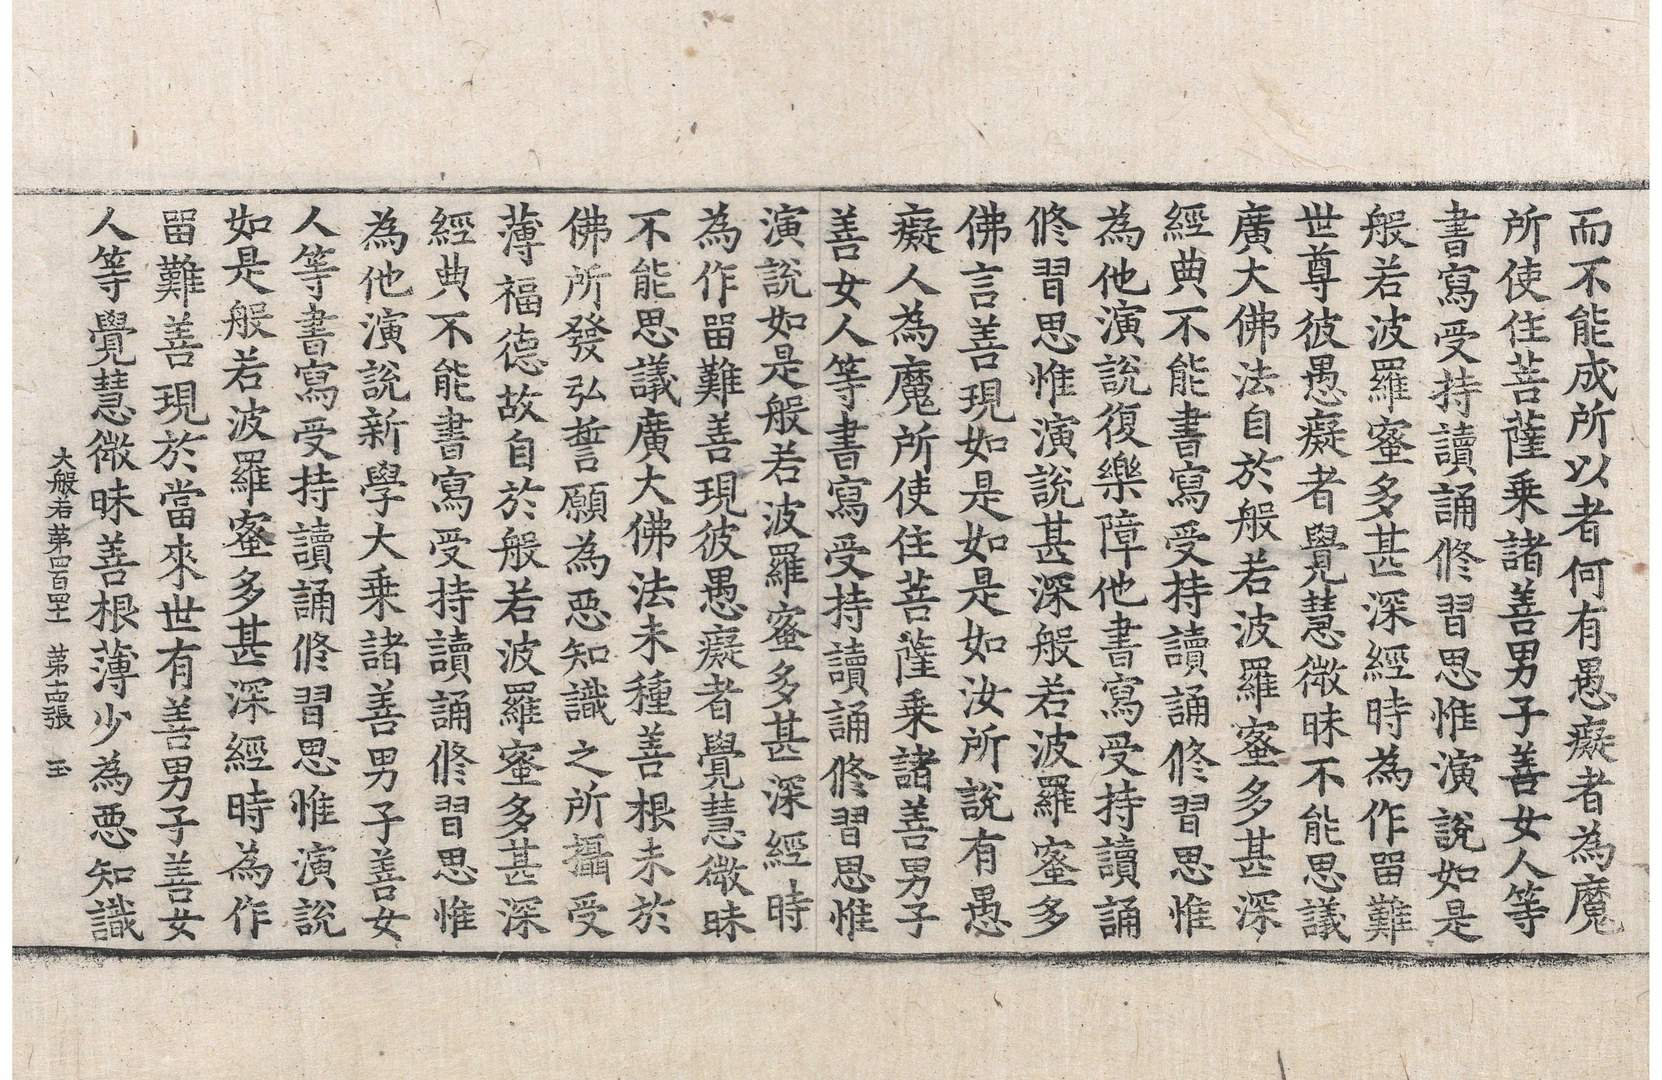 而不能成所以者何有愚癡者為魔
所使住菩薩乗諸善男子善女人等
書寫受持讀誦修習思惟演說如是
般若波羅蜜多甚深經時為作留難
世尊彼愚癡者覺慧微昧不能思議
廣大佛法自於般若波羅蜜多甚深
經典不能書寫受持讀誦修習思惟
為他演說復樂障他書寫受持讀誦
修習思惟演說甚深般若波羅蜜多
佛言善現如是如是如汝所說有愚
癡人為魔所使住菩薩乗諸善男子
善女人等書寫受持讀誦修習思惟
演說如是般若波羅蜜多甚深經時
為作留難善現彼愚癡者覺慧微昧
不能思議廣大佛法未種善根未於
佛所發弘誓願為惡知識之所攝受
薄福德故自於般若波羅蜜多甚深
經典不能書寫受持讀誦修習思惟
為他演說新學大乗諸善男子善女
人等書寫受持讀誦修習思惟演說
如是般若波羅蜜多甚深經時為作
留難善現於當來世有善男子善女
人等覺慧微昧善根薄少為惡知識
大般若第四百四十一 第十四張 玉